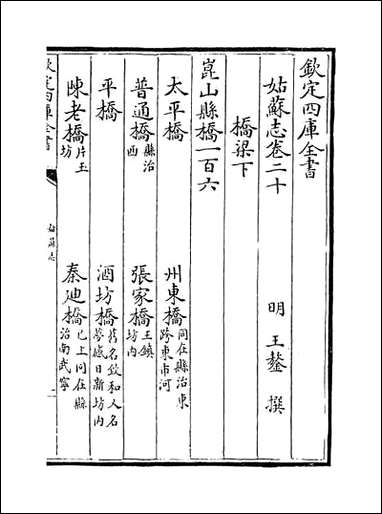 欽定四庫全書
姑蘇志卷二十
明 王鏊 撰
橋梁下
崑山縣橋一百六
太平橋 州東橋 同在縣治東跨東市河
普通橋 縣治西 張家橋 王鎮坊内
平橋 酒坊橋 舊名敘和人名夢感日新坊内
陳老橋 片玉坊 秦迪橋 已上同在縣治南武寧
欽定四庫全書
姑蘇志
一